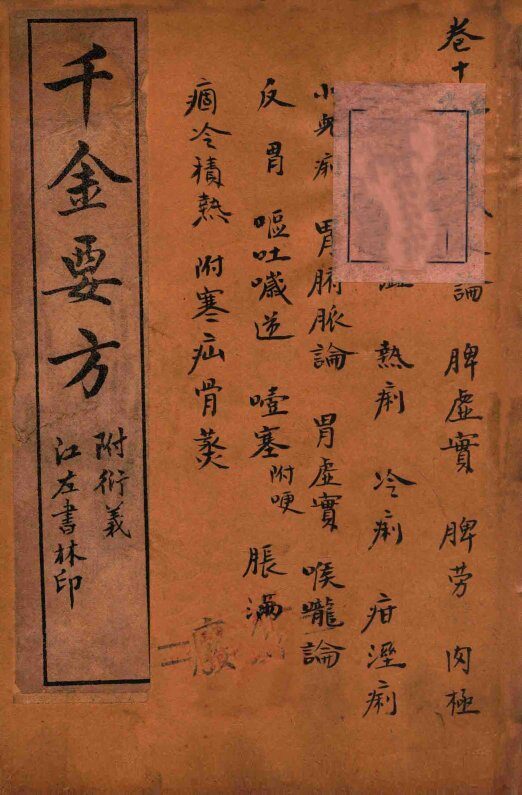 千金要方
附衍義
江左書林印
卷十
論 脾虛實 脾勞 肉極
熱痢 冷痢 疳溼痢
小兒痢 胃腑脈論 胃虛實 喉嚨論
反胃 嘔吐噦逆 噎塞 附哽 脹滿
痼冷積熱 附寒疝骨蒸